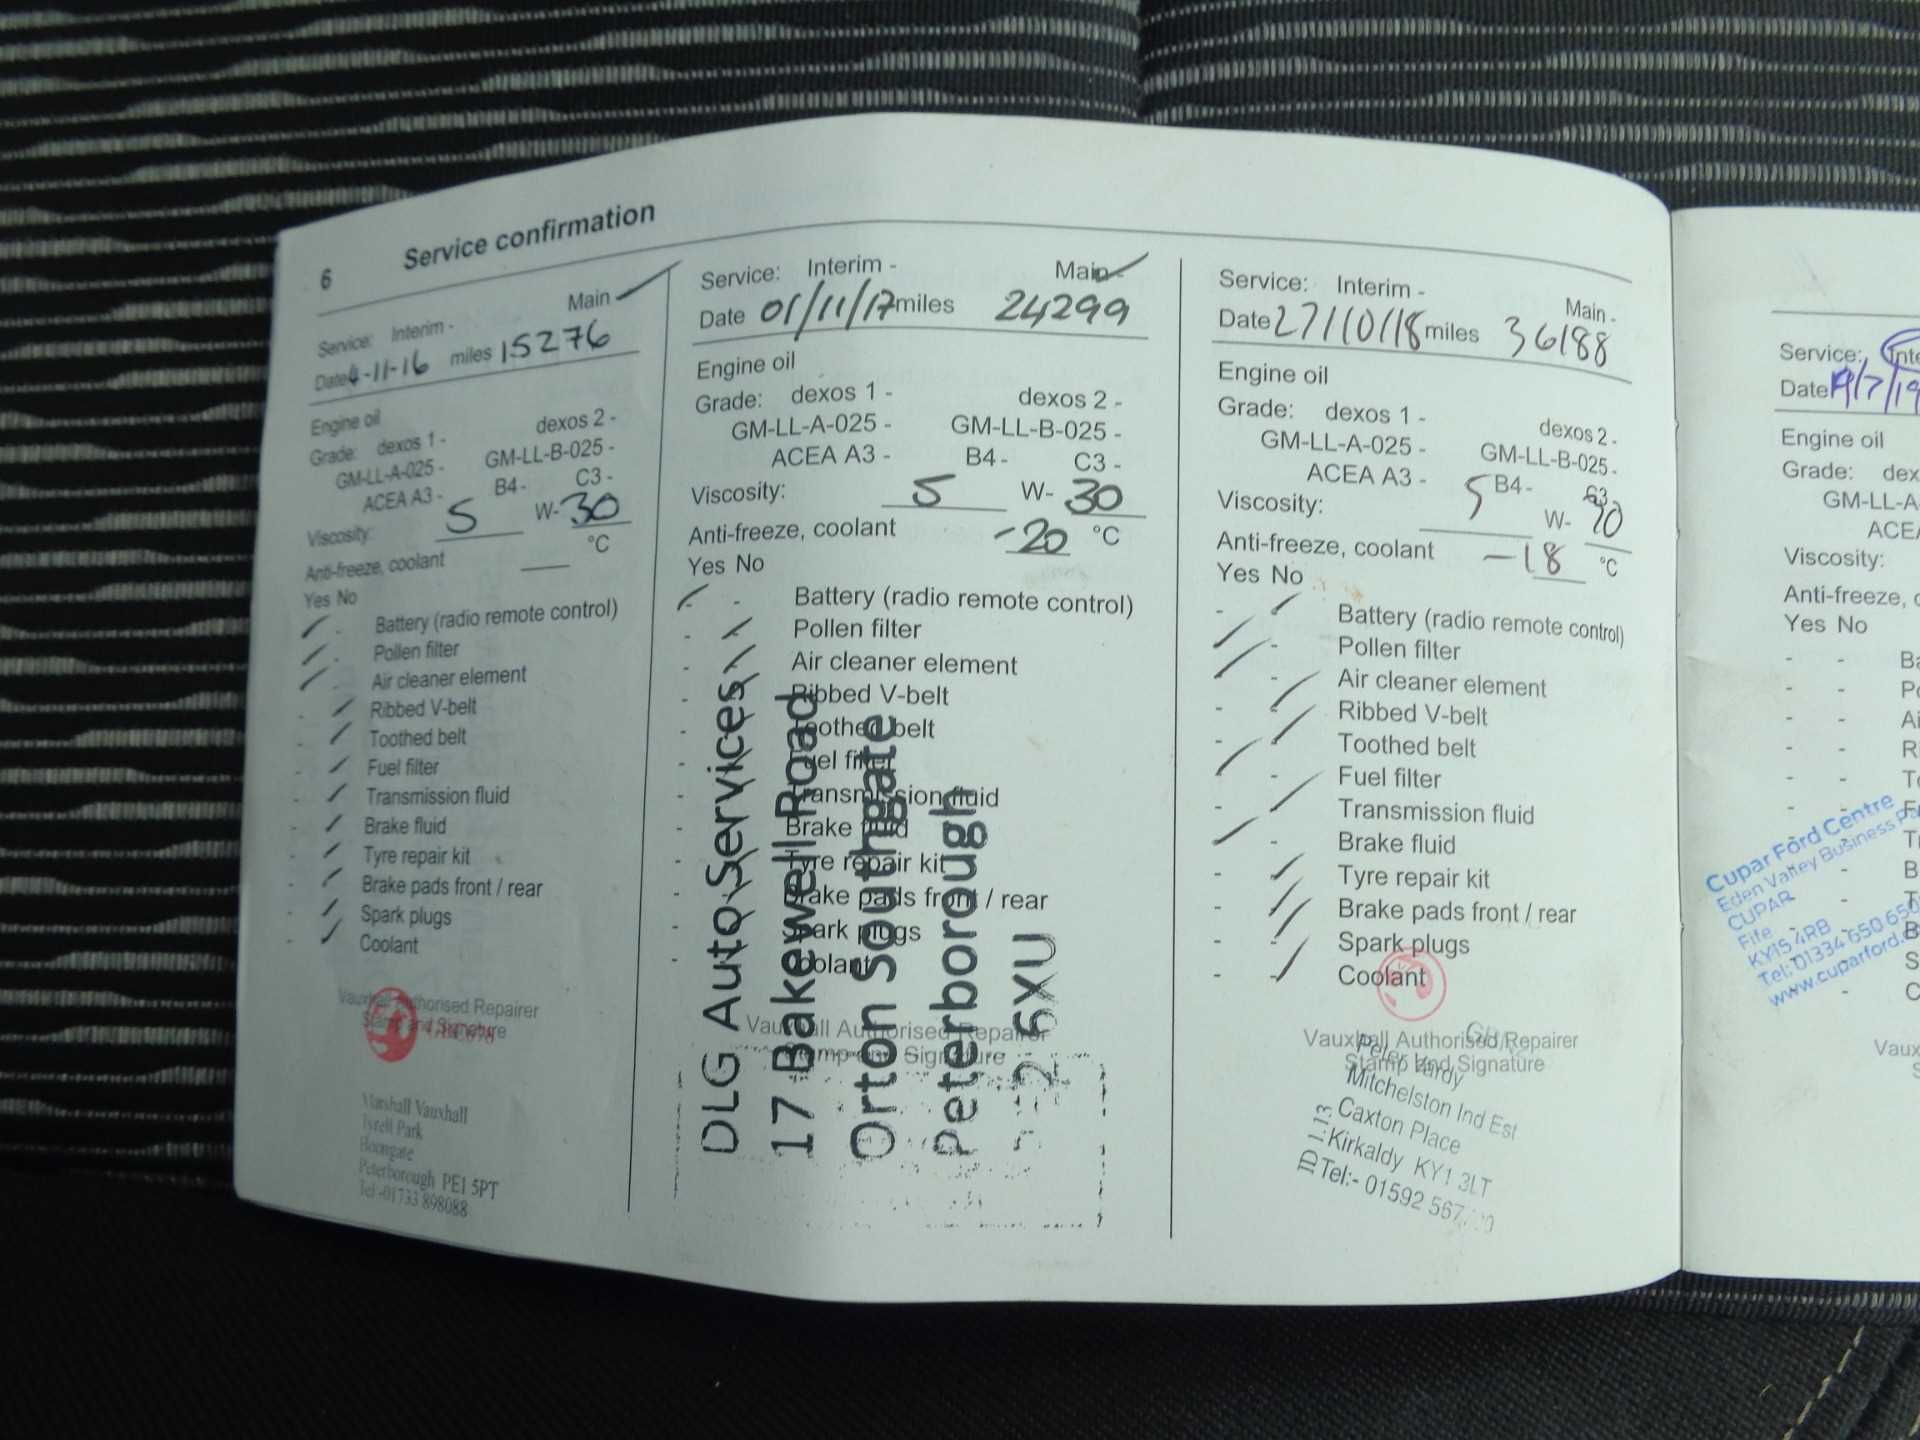 6
Service confirmation
Service: Interim -
Main
Date 4-11-16 miles 15276
Engine oil
Grade: dexos 1 - dexos 2 -
GM-LL-A-025 - GM-LL-B-025 -
ACEA A3 - B4 - C3 -
Viscosity: 5 W- 30
Anti-freeze, coolant °C
Yes No
Battery (radio remote control)
Pollen filter
Air cleaner element
Ribbed V-belt
Toothed belt
Fuel filter
Transmission fluid
Brake fluid
Tyre repair kit
Brake pads front / rear
Spark plugs
Coolant
Vauxhall Authorised Repairer
Stamp and Signature
Marshall Vauxhall
Tyrell Park
Boongate
Peterborough PE1 5PT
Tel -01733 898088
Service: Interim - Main -
Date 01/11/17 miles 24299
Engine oil
Grade: dexos 1 - dexos 2 -
GM-LL-A-025 - GM-LL-B-025 -
ACEA A3 - B4 - C3 -
Viscosity: 5 W- 30
Anti-freeze, coolant -20 °C
Yes No
Battery (radio remote control)
Pollen filter
Air cleaner element
Ribbed V-belt
Toothed belt
Fuel filter
Transmission fluid
Brake fluid
Tyre repair kit
Brake pads front / rear
Spark plugs
Coolant
Vauxhall Authorised Repairer
Stamp and Signature
DLG Auto Services
17 Bakewell Road
Orton Southgate
Peterborough
2 6XU
Service: Interim -
Main -
Date 27/10/18 miles 36188
Engine oil
Grade: dexos 1 - dexos 2 -
GM-LL-A-025 - GM-LL-B-025 -
ACEA A3 - B4 - C3
Viscosity: 5 W-
Anti-freeze, coolant -18 °C
Yes No
Battery (radio remote control)
Pollen filter
Air cleaner element
Ribbed V-belt
Toothed belt
Fuel filter
Transmission fluid
Brake fluid
Tyre repair kit
Brake pads front / rear
Spark plugs
Coolant
Vauxhall Authorised Repairer
Stamp and Signature
Peter Vardy
Mitchelston Ind Est
Caxton Place
Kirkaldy KY1 3LT
Tel:- 01592
Service: Inte
Date /7/19
Engine oil
Grade: dex
GM-LL-A
ACEA
Viscosity:
Anti-freeze, c
Yes No
Cupar Ford Centre
Eden Valley Business
CUPAR
Fife
KY15 4RB
Tel: 01334 650 650
www.cuparford.
Vaux